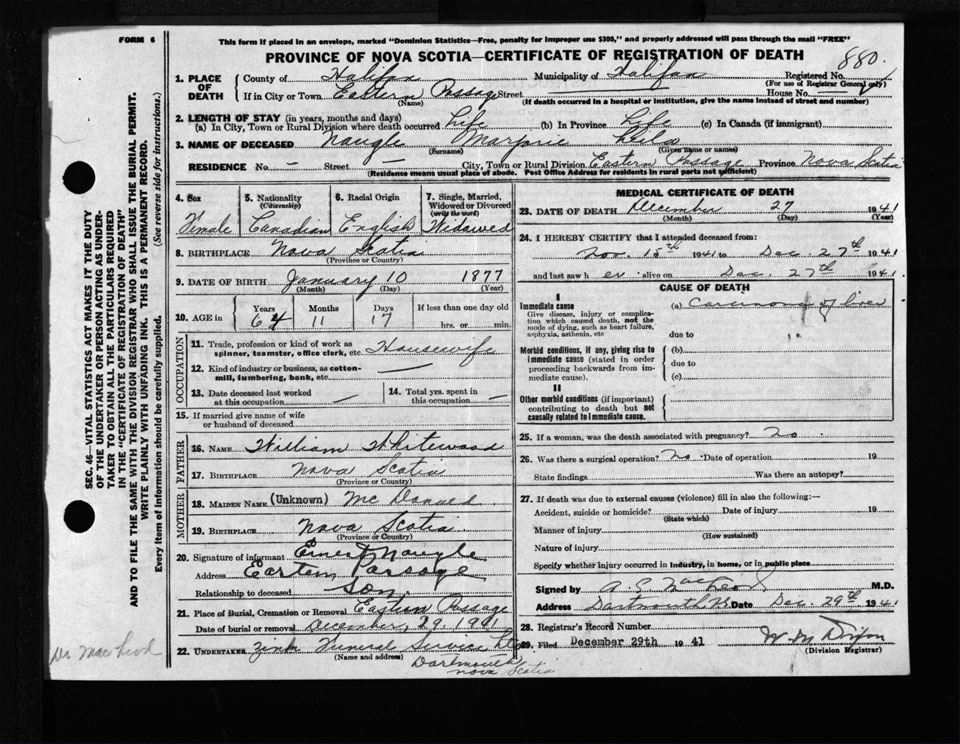 FORM 6
This form if placed in an envelope, marked "Dominion Statistics—Free, penalty for improper use $300," and properly addressed will pass through the mail "FREE"
PROVINCE OF NOVA SCOTIA—CERTIFICATE OF REGISTRATION OF DEATH
880
1. PLACE OF DEATH County of Halifax Municipality of Halifax Registered No.
(For use of Registrar General only)
If in City or Town Eastern Passage Street House No.
(Name) (If death occurred in a hospital or institution, give the name instead of street and number)
2. LENGTH OF STAY (in years, months and days)
(a) In City, Town or Rural Division where death occurred Life (b) In Province Life (c) In Canada (if immigrant)
3. NAME OF DECEASED Naugle Marjorie
(Surname) (Given name or names)
RESIDENCE No. — Street — City, Town or Rural Division Eastern Passage Province Nova Scotia
(Residence means usual place of abode. Post Office Address for residents in rural parts not sufficient)
4. Sex 5. Nationality (Citizenship) 6. Racial Origin 7. Single, Married, Widowed or Divorced (write the word)
Female Canadian English Widowed
8. BIRTHPLACE Nova Scotia
(Province or Country)
9. DATE OF BIRTH January 10 1877
(Month) (Day) (Year)
10. AGE in Years Months Days If less than one day old
64 11 17 hrs. or min.
OCCUPATION
11. Trade, profession or kind of work as spinner, teamster, office clerk, etc. Housewife
12. Kind of industry or business, as cotton-mill, lumbering, bank, etc. —
13. Date deceased last worked at this occupation — 14. Total yrs. spent in this occupation —
15. If married give name of wife or husband of deceased
FATHER
16. NAME William Whitewood
17. BIRTHPLACE Nova Scotia
(Province or Country)
MOTHER
18. MAIDEN NAME (Unknown) McDonald
19. BIRTHPLACE Nova Scotia
(Province or Country)
20. Signature of informant Ernest Naugle
Address Eastern Passage
Relationship to deceased Son
21. Place of Burial, Cremation or Removal Eastern Passage
Date of burial or removal December, 29, 1941
22. UNDERTAKER Zink Funeral Service Ltd
(Name and address) Dartmouth
Nova Scotia
MEDICAL CERTIFICATE OF DEATH
23. DATE OF DEATH December 27 1941
(Month) (Day) (Year)
24. I HEREBY CERTIFY that I attended deceased from:
Nov. 15th 1941 to Dec. 27th 1941
and last saw her alive on Dec. 27th 1941.
CAUSE OF DEATH
I
Immediate cause (a) Carcinoma of liver
Give disease, injury or complication which caused death, not the mode of dying, such as heart failure, asphyxia, asthenia, etc
due to
Morbid conditions, if any, giving rise to immediate cause (stated in order proceeding backwards from immediate cause). (b)
due to
(c)
II
Other morbid conditions (if important) contributing to death but not causally related to immediate cause.
25. If a woman, was the death associated with pregnancy? No.
26. Was there a surgical operation? No. Date of operation 19
State findings Was there an autopsy?
27. If death was due to external causes (violence) fill in also the following:—
Accident, suicide or homicide? Date of injury 19
(State which)
Manner of injury
(How sustained)
Nature of injury
Specify whether injury occurred in industry, in home, or in public place
Signed by A. S. MacLeod M.D.
Address Dartmouth N.S. Date Dec 29th 1941
28. Registrar's Record Number
29. Filed December 29th 1941 W. M. Dixon
(Division Registrar)
SEC. 46—VITAL STATISTICS ACT MAKES IT THE DUTY
OF THE UNDERTAKER OR PERSON ACTING AS UNDER-
TAKER TO OBTAIN ALL THE PARTICULARS REQUIRED
IN THE "CERTIFICATE OF REGISTRATION OF DEATH"
AND TO FILE THE SAME WITH THE DIVISION REGISTRAR WHO SHALL ISSUE THE BURIAL PERMIT.
WRITE PLAINLY WITH UNFADING INK. THIS IS A PERMANENT RECORD.
Every item of information should be carefully supplied. (See reverse side for instructions.)
Dr MacLeod